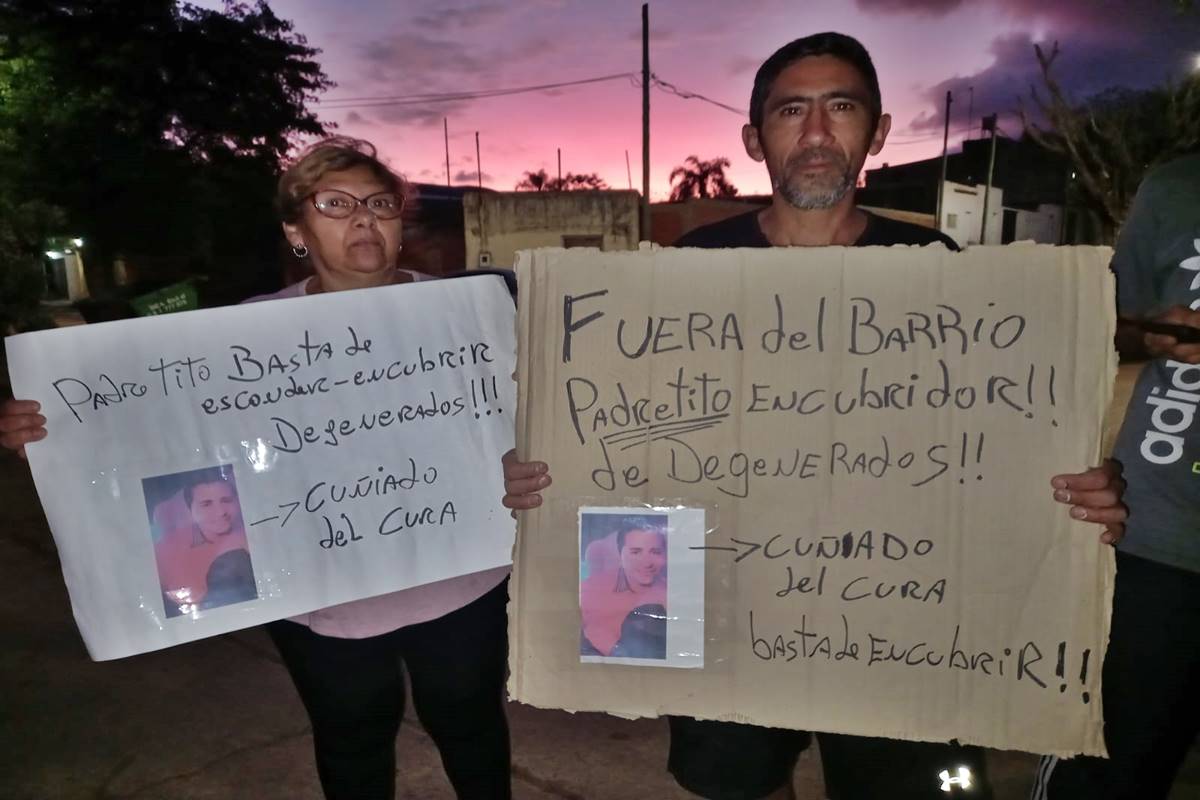 Padre Tito Basta de
esconder-encubrir
Degenerados!!!
CUÑIADO
del CURA
FUERA del BARRIO
Padretito ENCUBRIDOR!!
de DegenERAdos!!
CUÑIADO
del CURA
basta de ENCUbRiR!!
adidas